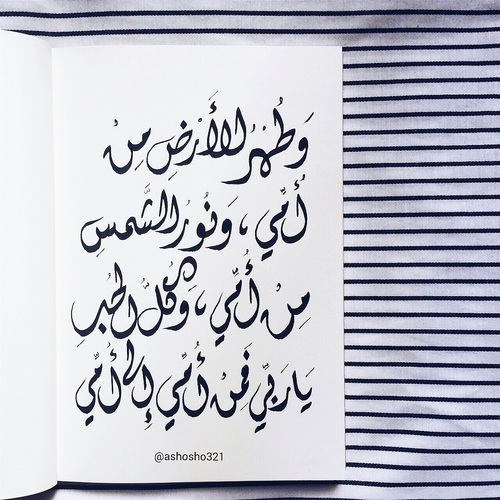 وَطُهْرُ الأَرْضِ مِنْ
أُمِّي، وَنُورُ الشَّمسِ
مِنْ أُمِّي، وَكُلُّ الحُبِ
يَا رَبِّي فَمِنْ أُمِّي إِلى أُمِّي
@ashosho321